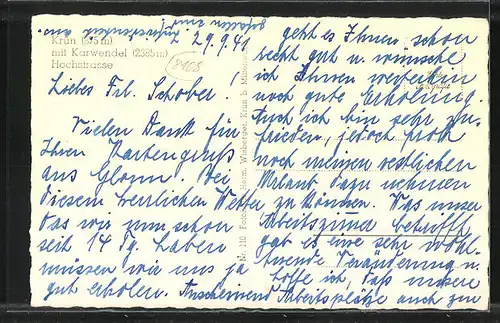 Krün (875 m)
mit Karwendel (2385 m)
Hochstrasse
29.9.41
Liebes Frl. Schober!
Vielen Dank für
Ihren Kartengruß
aus Glonn. Bei
diesem herrlichen Wetter
das wir nun schon
seit 14 Tg. haben
müssen wir uns ja
gut erholen. Anscheinend
geht es Ihnen schon
recht gut u. wünsche
ich Ihnen weiterhin
noch gute Erholung.
Auch ich bin sehr zu-
frieden, jedoch froh
noch meinen restlichen
Urlaub dazu nehmen
zu können. Was unser
Arbeitszimmer betrifft
gab es eine sehr wohl-
tuende Veränderung u.
hoffe ich, daß unsere
Arbeitsplätze auch zur
gefallen
Nr. 110 Foto Herm. Krün b.